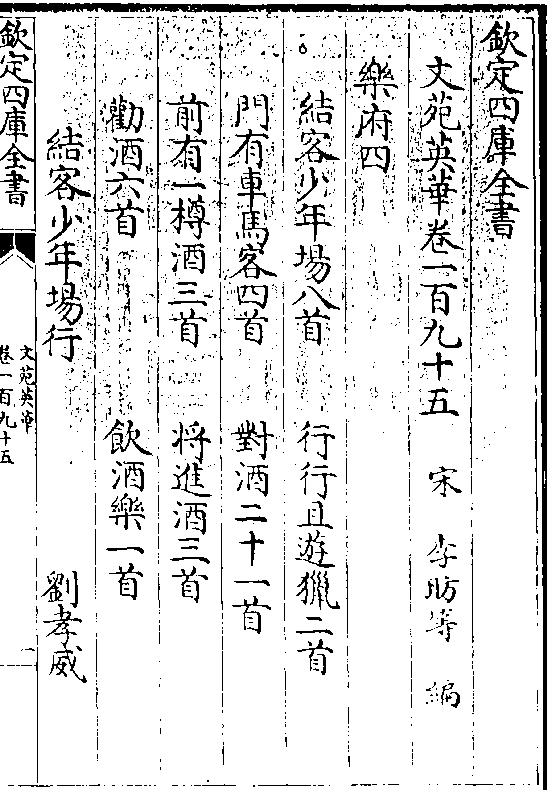 欽定四庫全書
文苑英華卷一百九十五　宋　李昉等　編
樂府四
結客少年場八首　行行且遊獵二首
門有車馬客四首　對酒二十一首
前有一樽酒三首　將進酒三首
勸酒六首　飲酒樂一首
結客少年場行　劉孝威
欽定四庫全書
文苑英華
卷一百九十五
一